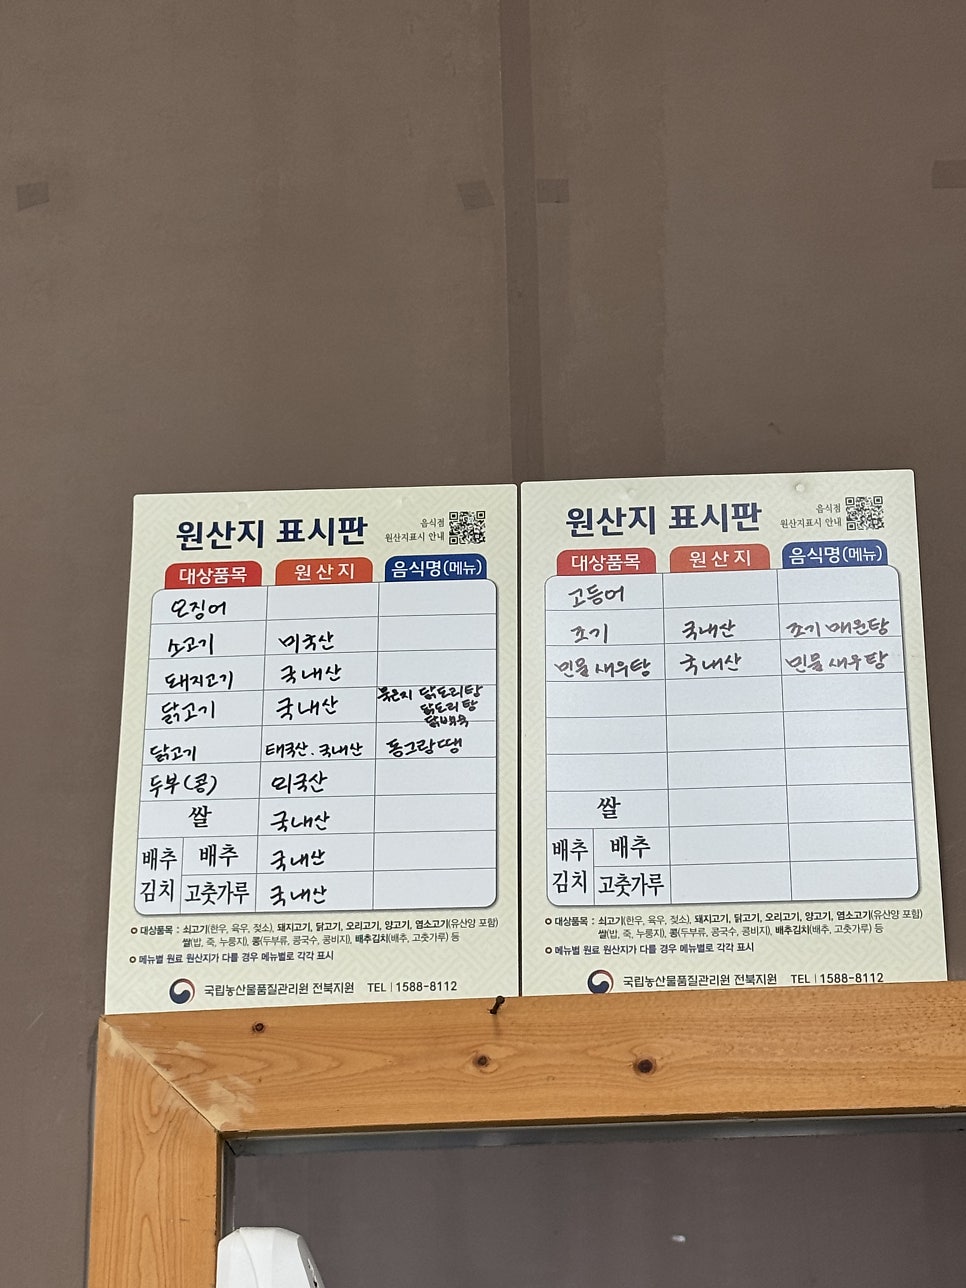 원산지 표시판
음식점
원산지표시 안내
대상품목 원산지 음식명(메뉴)
오징어
소고기 미국산
돼지고기 국내산
닭고기 국내산 묵은지 닭도리탕
닭도리탕
닭백숙
닭고기 태국산.국내산 동그랑땡
두부(콩) 외국산
쌀 국내산
배추 배추 국내산
김치 고춧가루 국내산
대상품목 : 쇠고기(한우, 육우, 젖소), 돼지고기, 닭고기, 오리고기, 양고기, 염소고기(유산양 포함)
쌀(밥, 죽, 누룽지), 콩(두부류, 콩국수, 콩비지), 배추김치(배추, 고춧가루) 등
메뉴별 원료 원산지가 다를 경우 메뉴별로 각각 표시
국립농산물품질관리원 전북지원 TEL | 1588-8112
원산지 표시판
음식점
원산지표시 안내
대상품목 원산지 음식명(메뉴)
고등어
조기 국내산 조기 매운탕
민물 새우탕 국내산 민물 새우탕
쌀
배추 배추
김치 고춧가루
대상품목 : 쇠고기(한우, 육우, 젖소), 돼지고기, 닭고기, 오리고기, 양고기, 염소고기(유산양 포함)
쌀(밥, 죽, 누룽지), 콩(두부류, 콩국수, 콩비지), 배추김치(배추, 고춧가루) 등
메뉴별 원료 원산지가 다를 경우 메뉴별로 각각 표시
국립농산물품질관리원 전북지원 TEL | 1588-8112